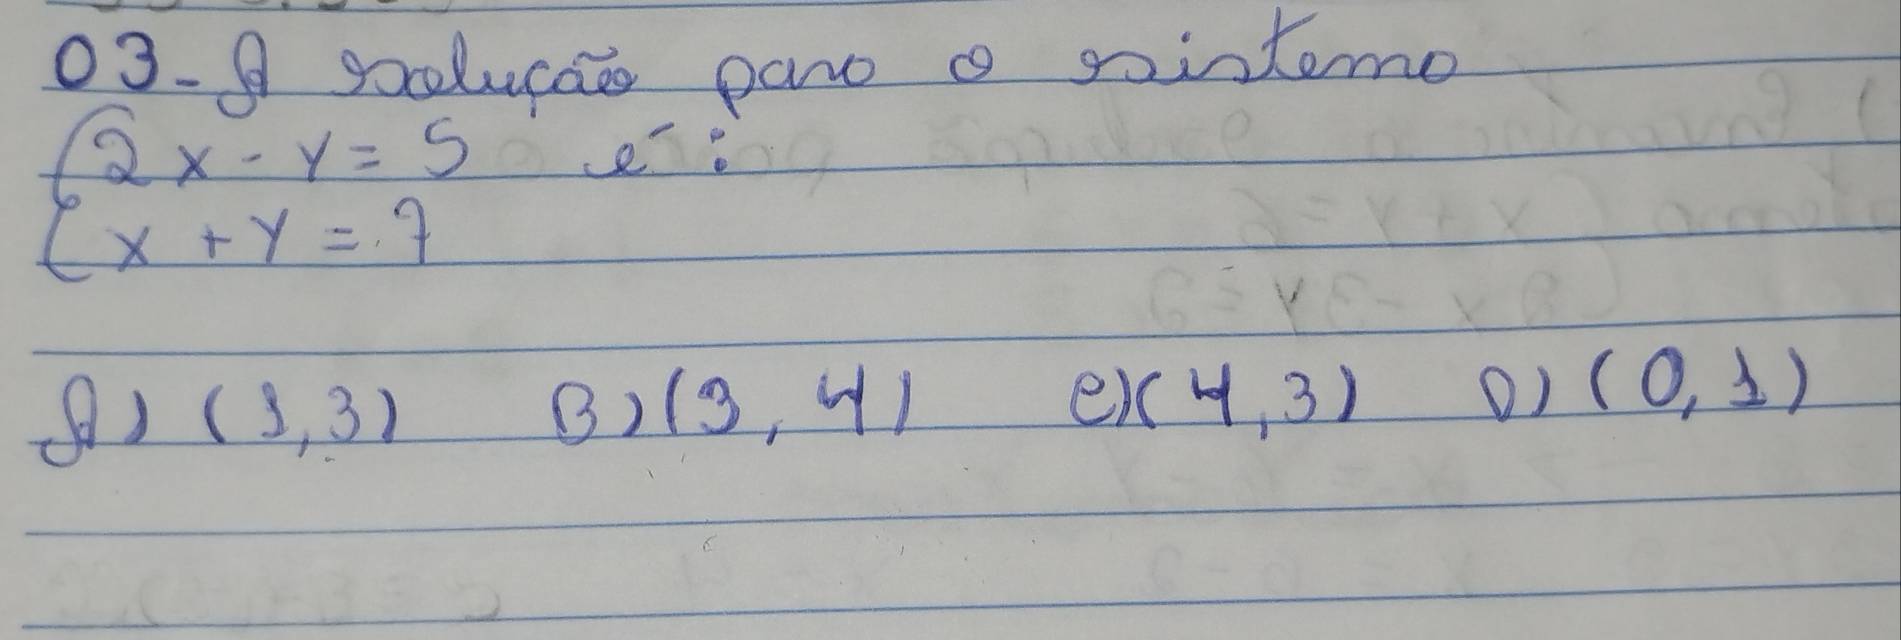 03- A solução para o sistema
{2x - y = 5 é:
{x + y = 7
A) (1,3) B) (3,4) C) (4,3) D) (0,1)